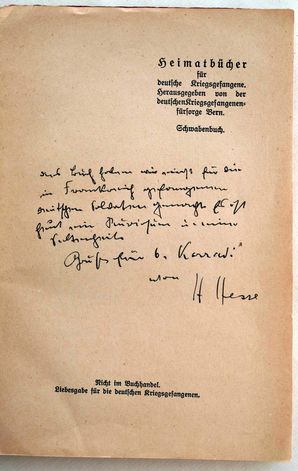 Heimatbücher
für
deutsche Kriegsgefangene.
Herausgegeben von der
deutschen Kriegsgefangenen-
fürsorge Bern.
Schwabenbuch.
das Buch haben wir einst für die
in Frankreich gefangenen
deutschen Soldaten gemacht. Es ist
heut ein Kuriosum u. eine
Seltenheit.
Gruß für
von H Hesse
Nicht im Buchhandel.
Liebesgabe für die deutschen Kriegsgefangenen.